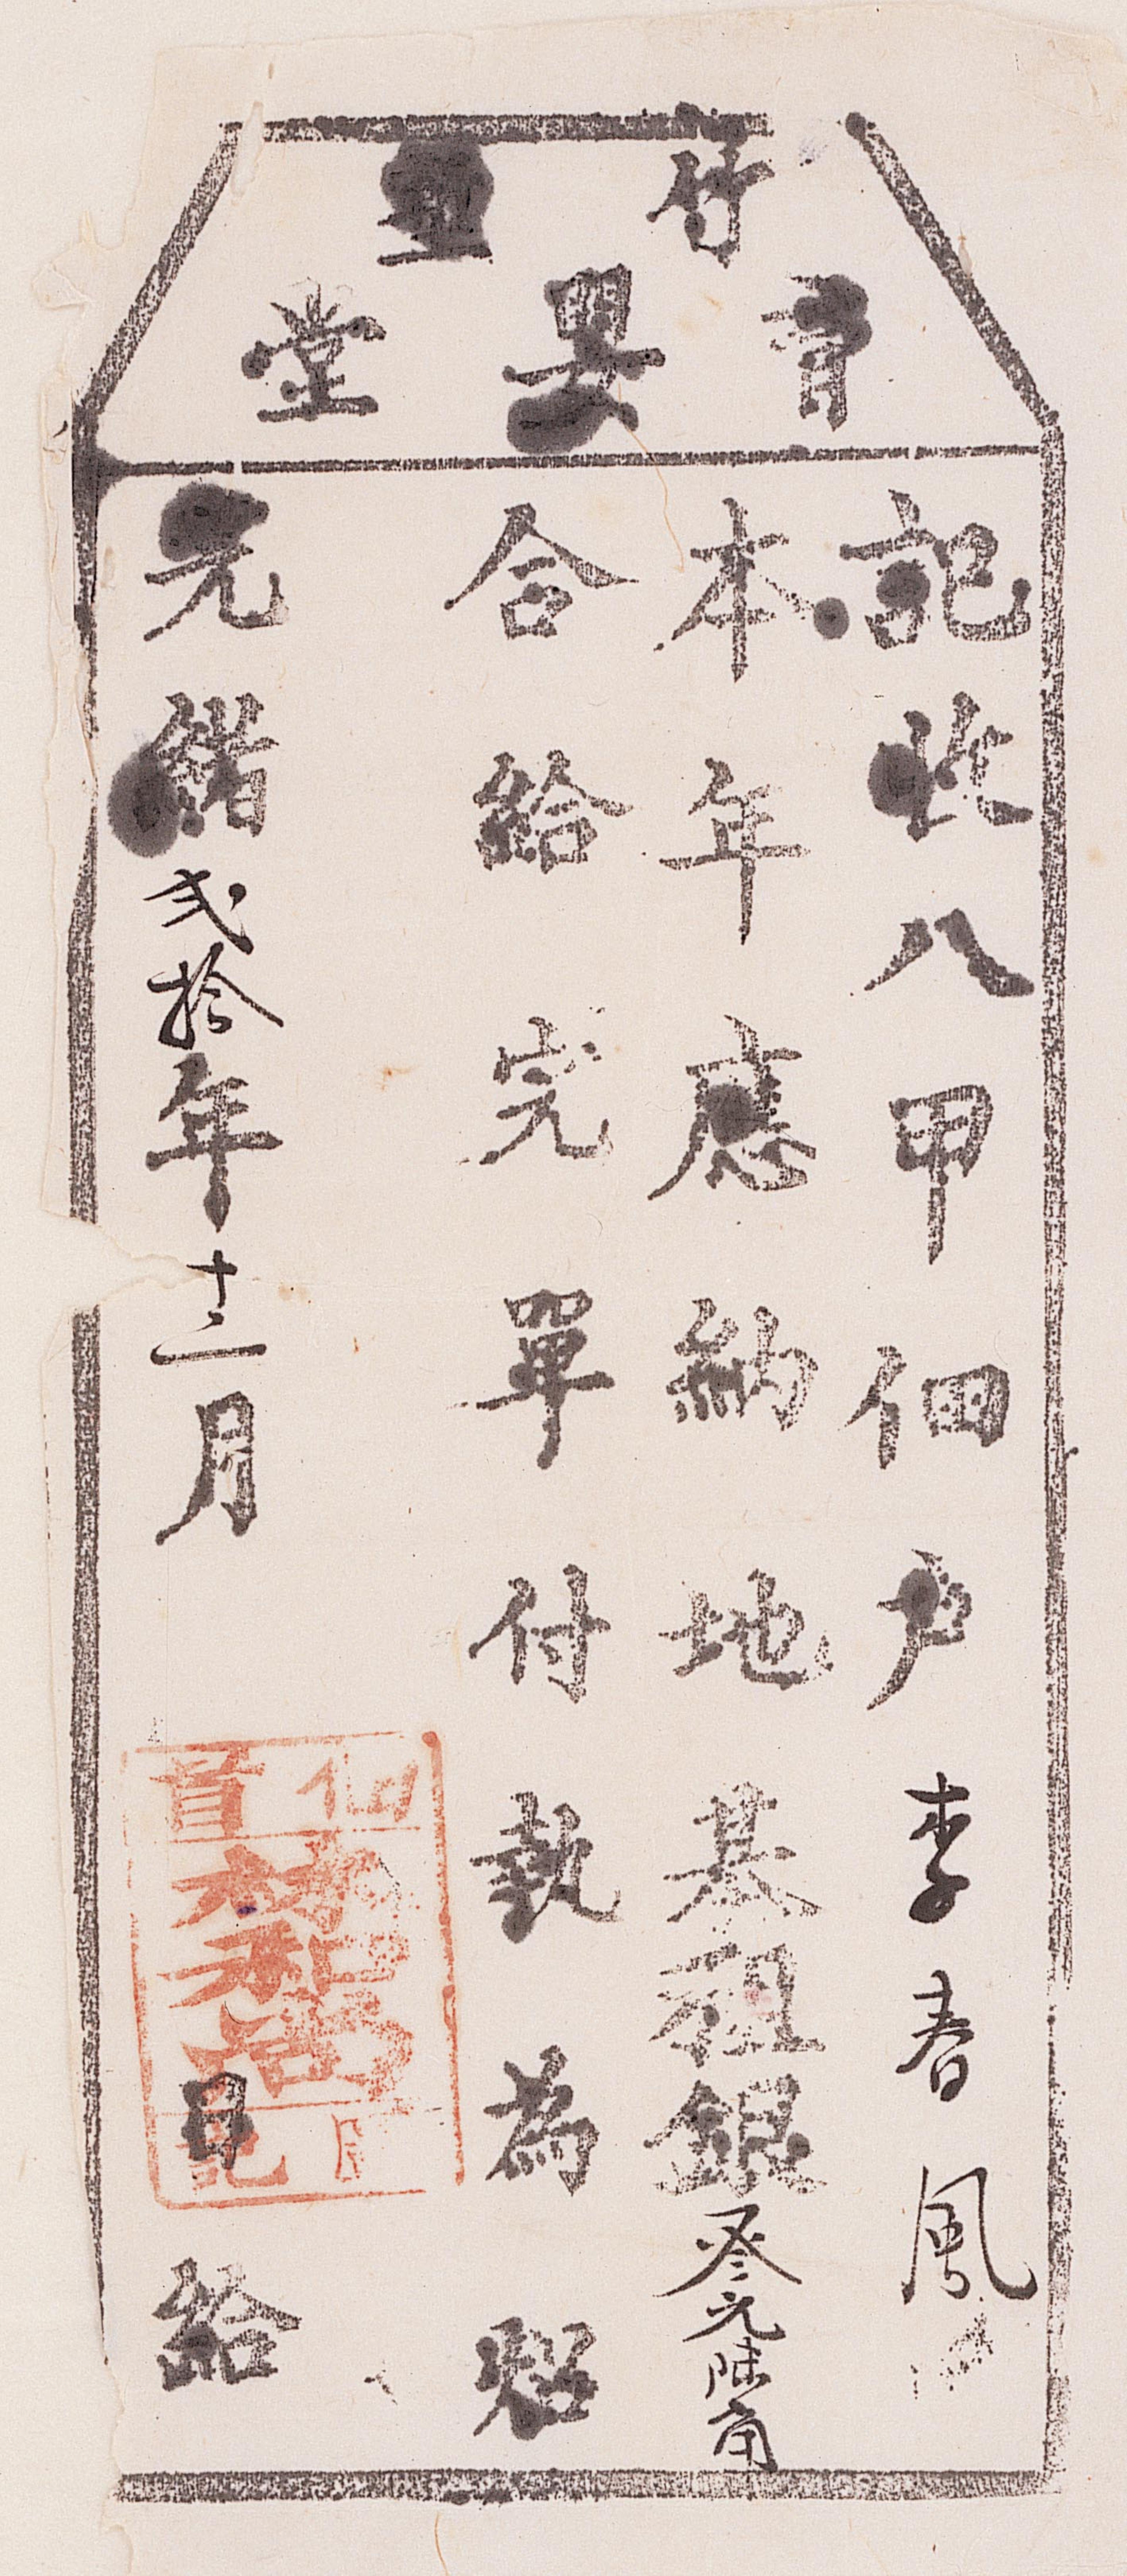 竹塹
育嬰堂
記收八甲佃戶李春風
本年應納地基租銀叁元陸角
合給完單付執為照
光緒弍拾年十二月 日給
佃首
記